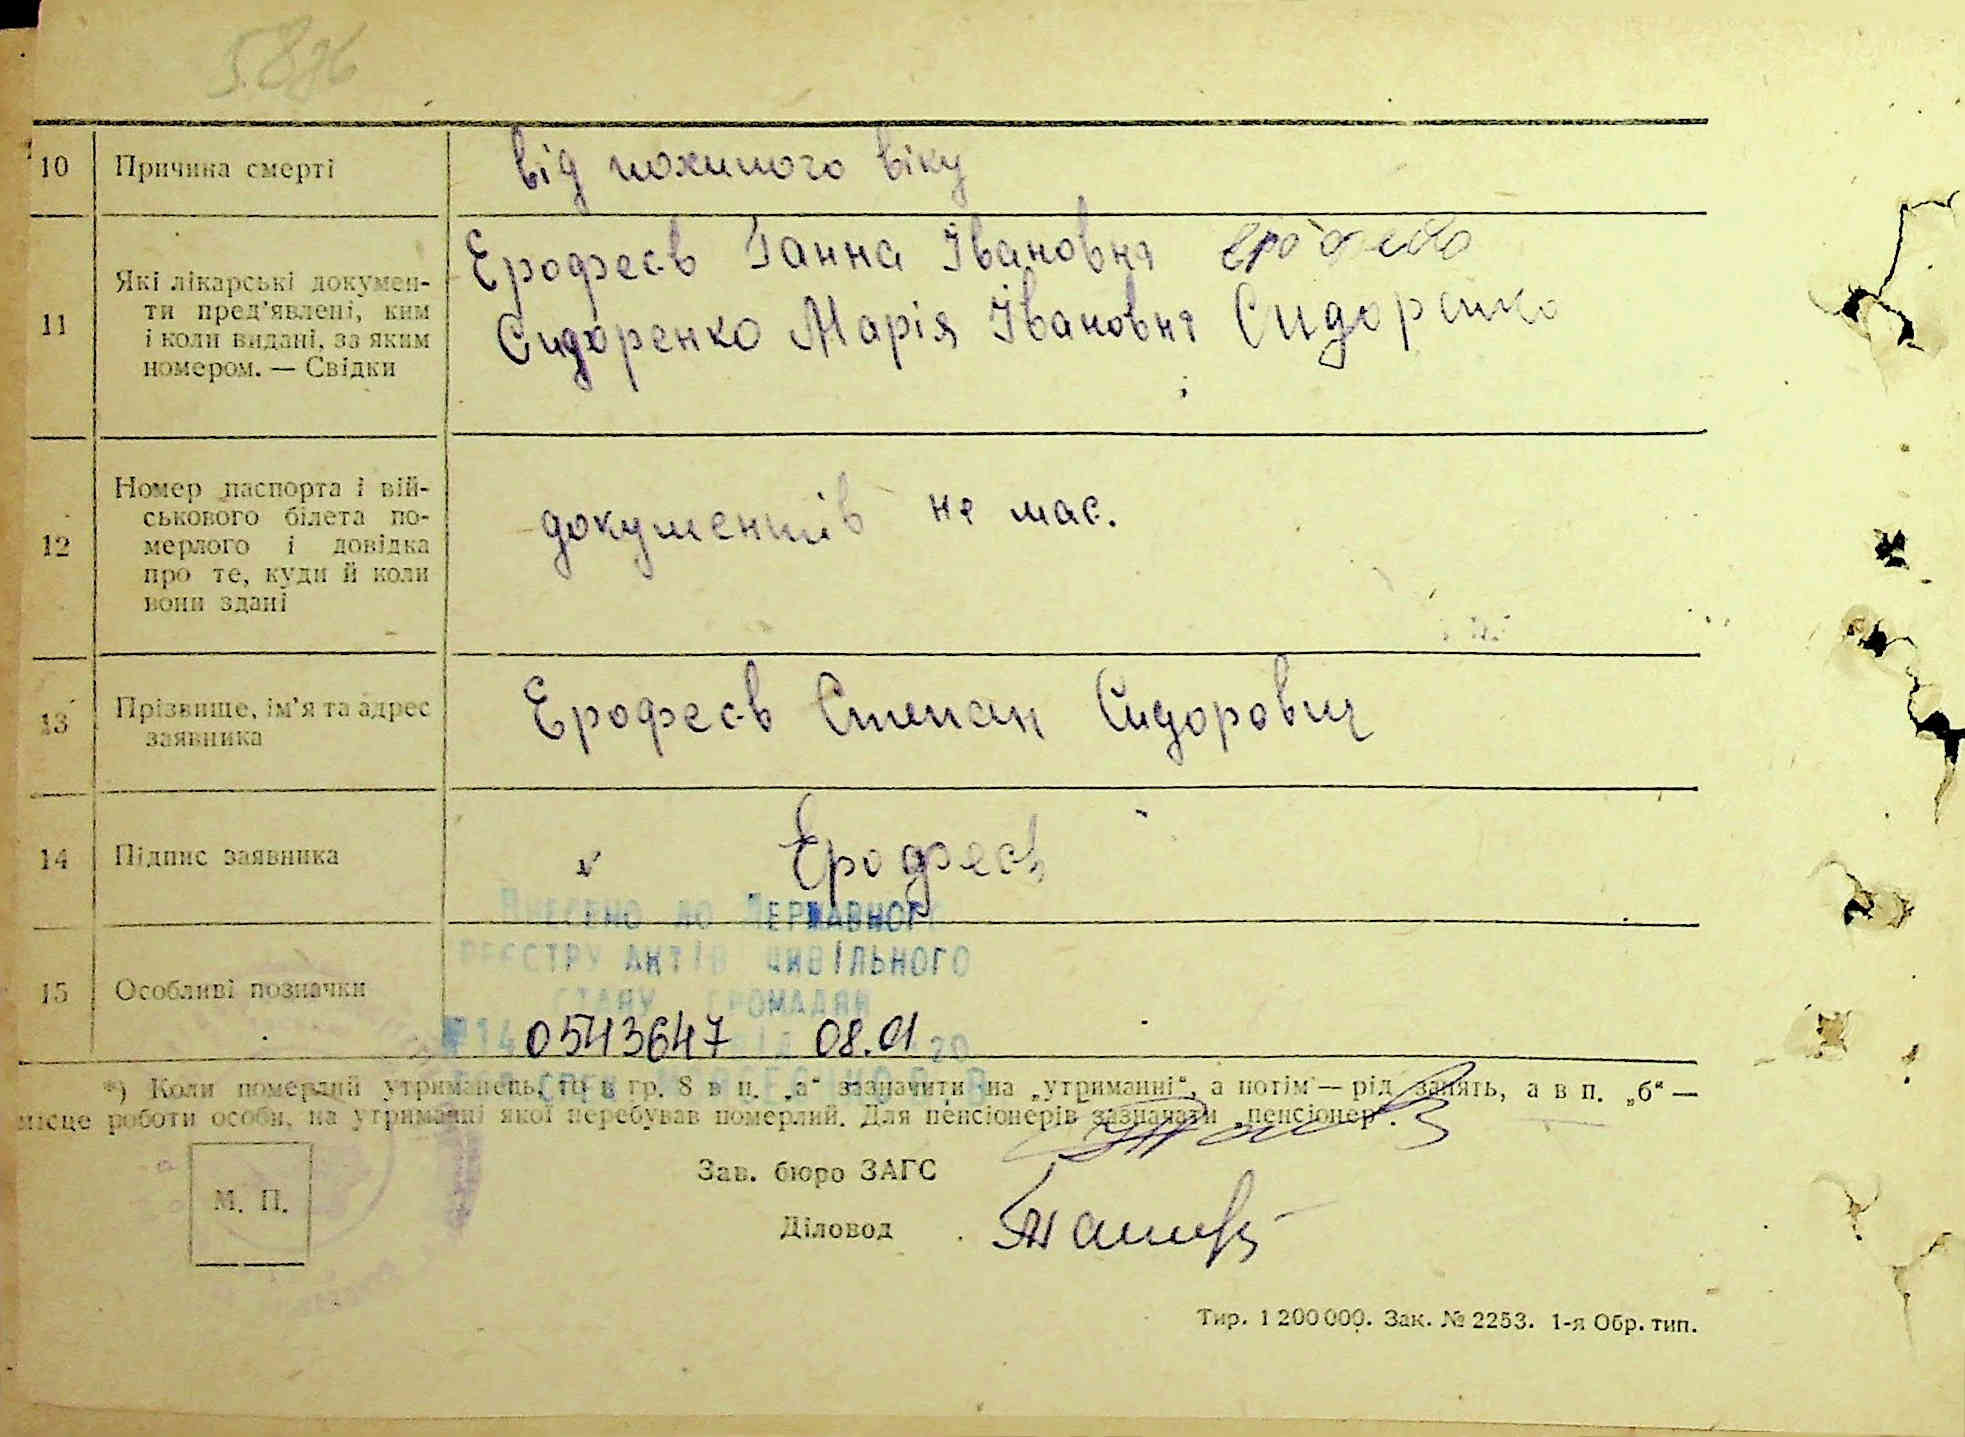 10 Причина смерті
від похилого віку
11 Які лікарські докумен-
ти пред’явлені, ким
і коли видані, за яким
номером. — Свідки
Ерофеєв Ганна Івановна
Сидоренко Марія Івановна Сидоренко
12 Номер паспорта і вій-
ськового білета по-
мерлого і довідка
про те, куди й коли
вони здані
документів не має.
13 Прізвище, ім’я та адрес
заявника
Ерофеєв Степан Сидорович
14 Підпис заявника
Ерофеєв
15 Особливі позначки
Внесено до Державного
реєстру актів цивільного
стану громадян
0543647 08.01 20
*) Коли померлий утриманець, то в гр. 8 в п. „а“ зазначити „на утриманні“, а потім — рід занять, а в п. „б“ —
місце роботи особи, на утриманні якої перебував померлий. Для пенсіонерів зазначати „пенсіонер“.
М. П.
Зав. бюро ЗАГС
Діловод
Тир. 1 200 000. Зак. № 2253. 1-я Обр. тип.